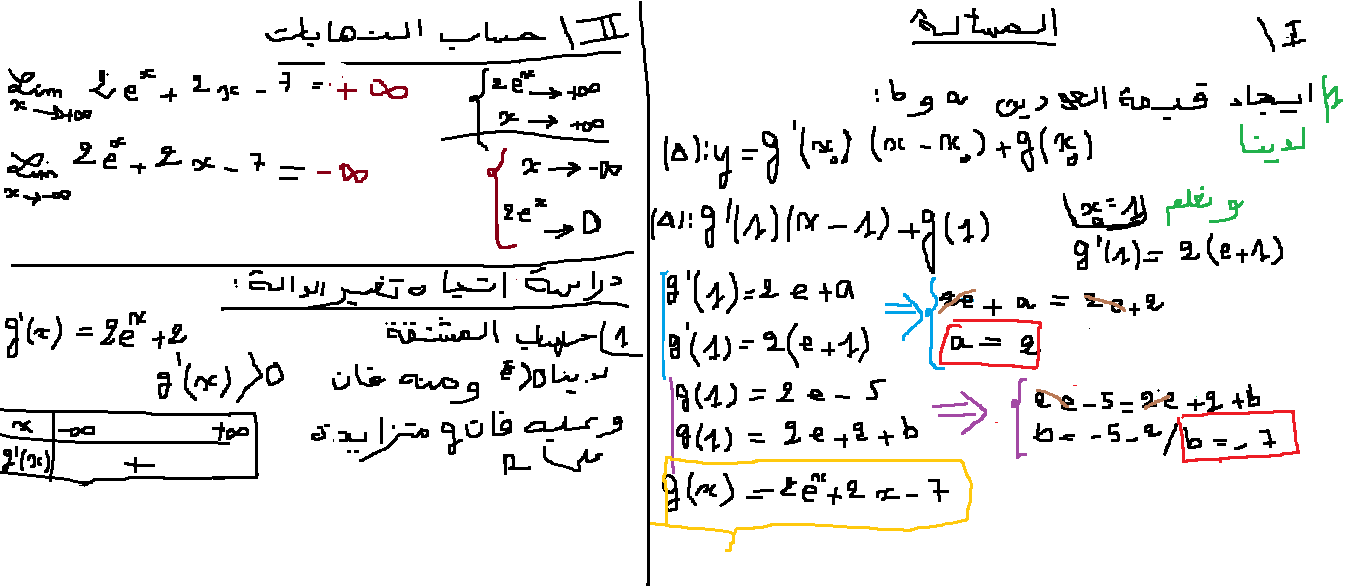 المسألة
I\
1/ ايجاد قيمة العددين a و b:
لدينا
(Δ): y = g'(x₀) (x - x₀) + g(x₀)
و نعلم x₀ = 1
(Δ): g'(1)(x - 1) + g(1)
g'(1) = 2(e+1)
g'(1) = 2e + a ⇒ 2e + a = 2e + 2
g'(1) = 2(e+1) a = 2
g(1) = 2e - 5 ⇒ 2e - 5 = 2e + 2 + b
g(1) = 2e + 2 + b b = -5 - 2 / b = -7
g(x) = 2eˣ + 2x - 7
II\ حساب النهايات
lim x→+∞ 2eˣ + 2x - 7 = +∞
2eˣ → +∞
x → +∞
lim x→-∞ 2eˣ + 2x - 7 = -∞
x → -∞
2eˣ → 0
دراسة اتجاه تغير الدالة:
1) حساب المشتقة
g'(x) = 2eˣ + 2
لدينا eˣ>0 ومنه فان g'(x) > 0
وعليه فان g متزايدة
على R
x -∞ +∞
g'(x) +